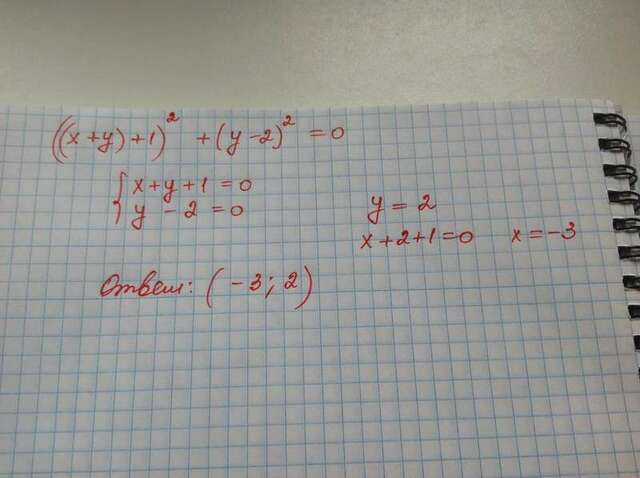 ((x+y)+1)² + (y-2)² = 0
{ x+y+1 = 0
y - 2 = 0
y = 2
x+2+1=0 x=-3
Ответ: (-3; 2)